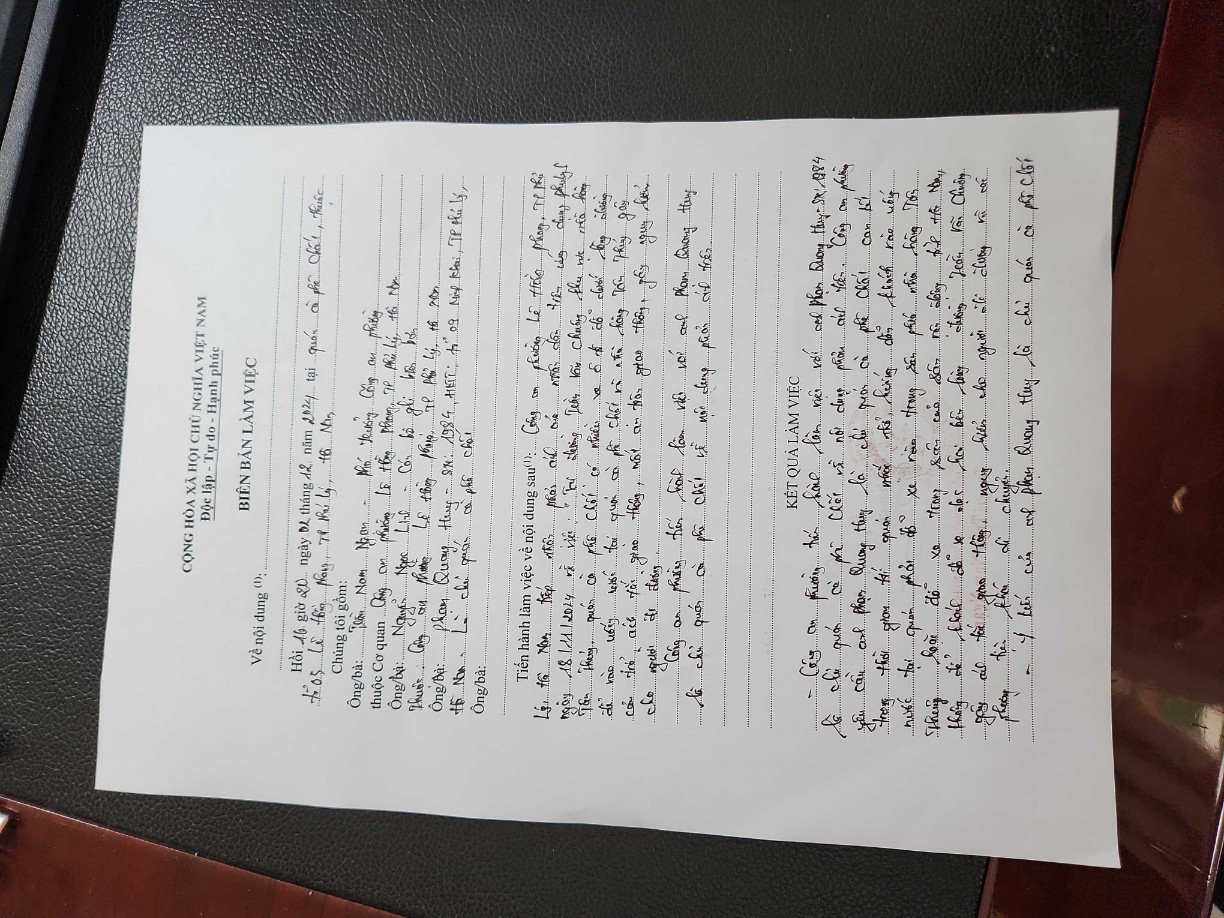 CỘNG HÒA XÃ HỘI CHỦ NGHĨA VIỆT NAM
Độc lập - Tự do - Hạnh phúc
BIÊN BẢN LÀM VIỆC
Về nội dung (1):
Hồi 16 giờ 20 ngày 02 tháng 12 năm 2024 tại quán cà phê Chất, thuộc
tổ 05 Lê Hồng Phong, TP Phủ Lý, Hà Nam
Chúng tôi gồm:
Ông/bà: Trần Nam Ngạn - Phó trưởng Công an phường
thuộc Cơ quan Công an phường Lê Hồng Phong, TP Phủ Lý, Hà Nam
Ông/bà: Nguyễn Ngọc Linh - Cán bộ ghi biên bản
Thuộc: Công an phường Lê Hồng Phong, TP Phủ Lý, Hà Nam
Ông/bà: Phạm Quang Huy - SN: 1984, HKTT: tổ 09 Minh Khai, TP Phủ Lý,
Hà Nam - Là chủ quán cà phê chất
Ông/bà:
Tiến hành làm việc về nội dung sau(1): Công an phường Lê Hồng Phong, TP Phủ
Lý, Hà Nam tiếp nhận phản ánh của nhân dân trên ứng dụng
ngày 18/11/2024 về việc: "Tại đường Trần Văn Chuông khu vực nhà hàng
Tân Thủy, quán cà phê Chất có nhiều xe ô tô đỗ dưới lòng đường
để vào uống nước tại quán cà phê Chất và nhà hàng Tân Thủy gây
cản trở, ách tắc giao thông, mất an toàn giao thông, gây nguy hiểm
cho người đi đường.
Công an phường tiến hành làm việc với anh Phạm Quang Huy
là chủ quán cà phê Chất về nội dung phản ánh trên.
KẾT QUẢ LÀM VIỆC
- Công an phường tiến hành làm việc với anh Phạm Quang Huy - SN: 1984
là chủ quán cà phê Chất về nội dung phản ánh trên. Công an phường
yêu cầu anh Phạm Quang Huy là chủ quán cà phê Chất cam kết
trong thời gian tới quán nhắc nhở, hướng dẫn khách vào uống
nước tại quán phải đỗ xe vào trong sân phía nhà hàng Tân
Thủy hoặc đỗ xe trong sân của sân vận động tỉnh Hà Nam,
không để khách đỗ xe dọc hai bên lòng đường Trần Văn Chuông
gây ách tắc giao thông nguy hiểm cho người đi đường và các
phương tiện khác di chuyển.
- Ý kiến của anh Phạm Quang Huy là chủ quán cà phê Chất